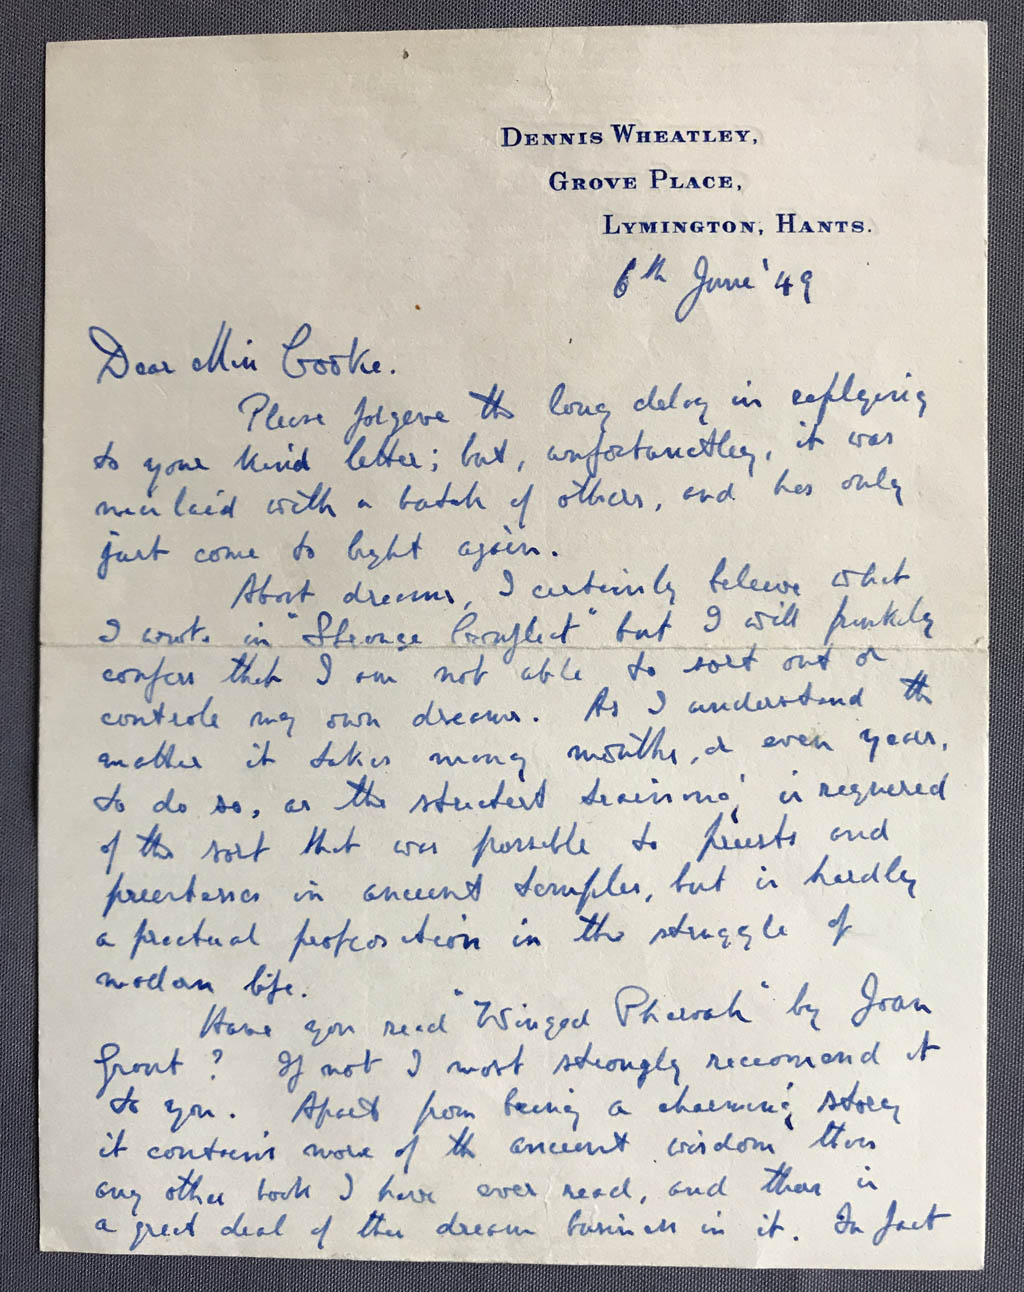 DENNIS WHEATLEY,
GROVE PLACE,
LYMINGTON, HANTS.
6th June '49
Dear Miss Cooke.
Please forgive the long delay in replying
to your kind letter; but, unfortunatley, it was
mislaid with a batch of others, and has only
just come to light again.
About dreams, I certainly beleive what
I wrote in "Strange Conflict" but I will frankly
confess that I am not able to sort out or
controle my own dreams. As I understand the
matter it takes many months, or even years,
to do so, as the strictest training is required
of the sort that was possible to priests and
priestesses in ancient temples, but is hardly
a practical proposition in the struggle of
modern life.
Have you read "Winged Pharoah" by Joan
Grant? If not I most strongly reccomend it
to you. Apart from being a charming story
it contains more of the ancient wisdom than
any other book I have ever read, and there is
a great deal of this dream business in it. In fact